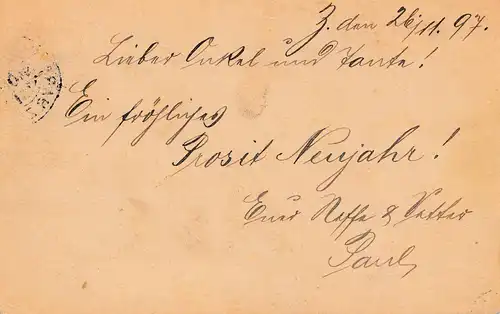 Z. den 26/11. 97.
Lieber Onkel und Tante!
Ein fröhliches
Prosit Neujahr!
Euer Neffe & Vetter
Paul